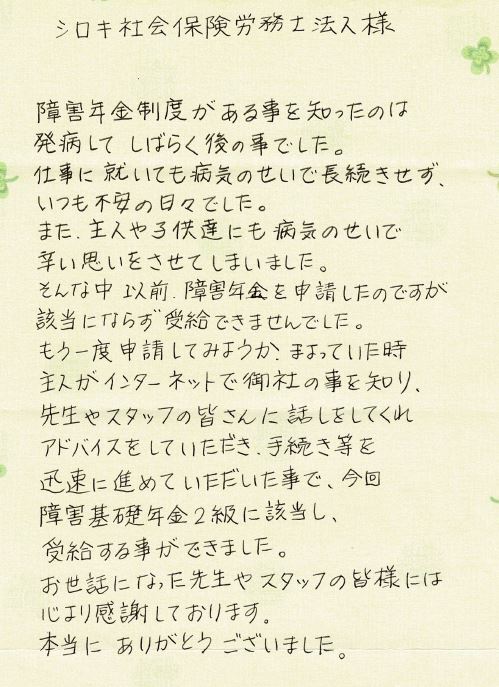 シロキ社会保険労務士法人様
障害年金制度がある事を知ったのは
発病して しばらく後の事でした。
仕事に就いても病気のせいで長続きせず、
いつも不安の日々でした。
また、主人や子供達にも病気のせいで
辛い思いをさせてしまいました。
そんな中 以前、障害年金を申請したのですが
該当にならず受給できませんでした。
もう一度申請してみようか、まよっていた時
主人がインターネットで御社の事を知り、
先生やスタッフの皆さんに話しをしてくれ
アドバイスをしていただき、手続き等を
迅速に進めていただいた事で、今回
障害基礎年金2級に該当し、
受給する事ができました。
お世話になった先生やスタッフの皆様には
心より感謝しております。
本当に ありがとうございました。